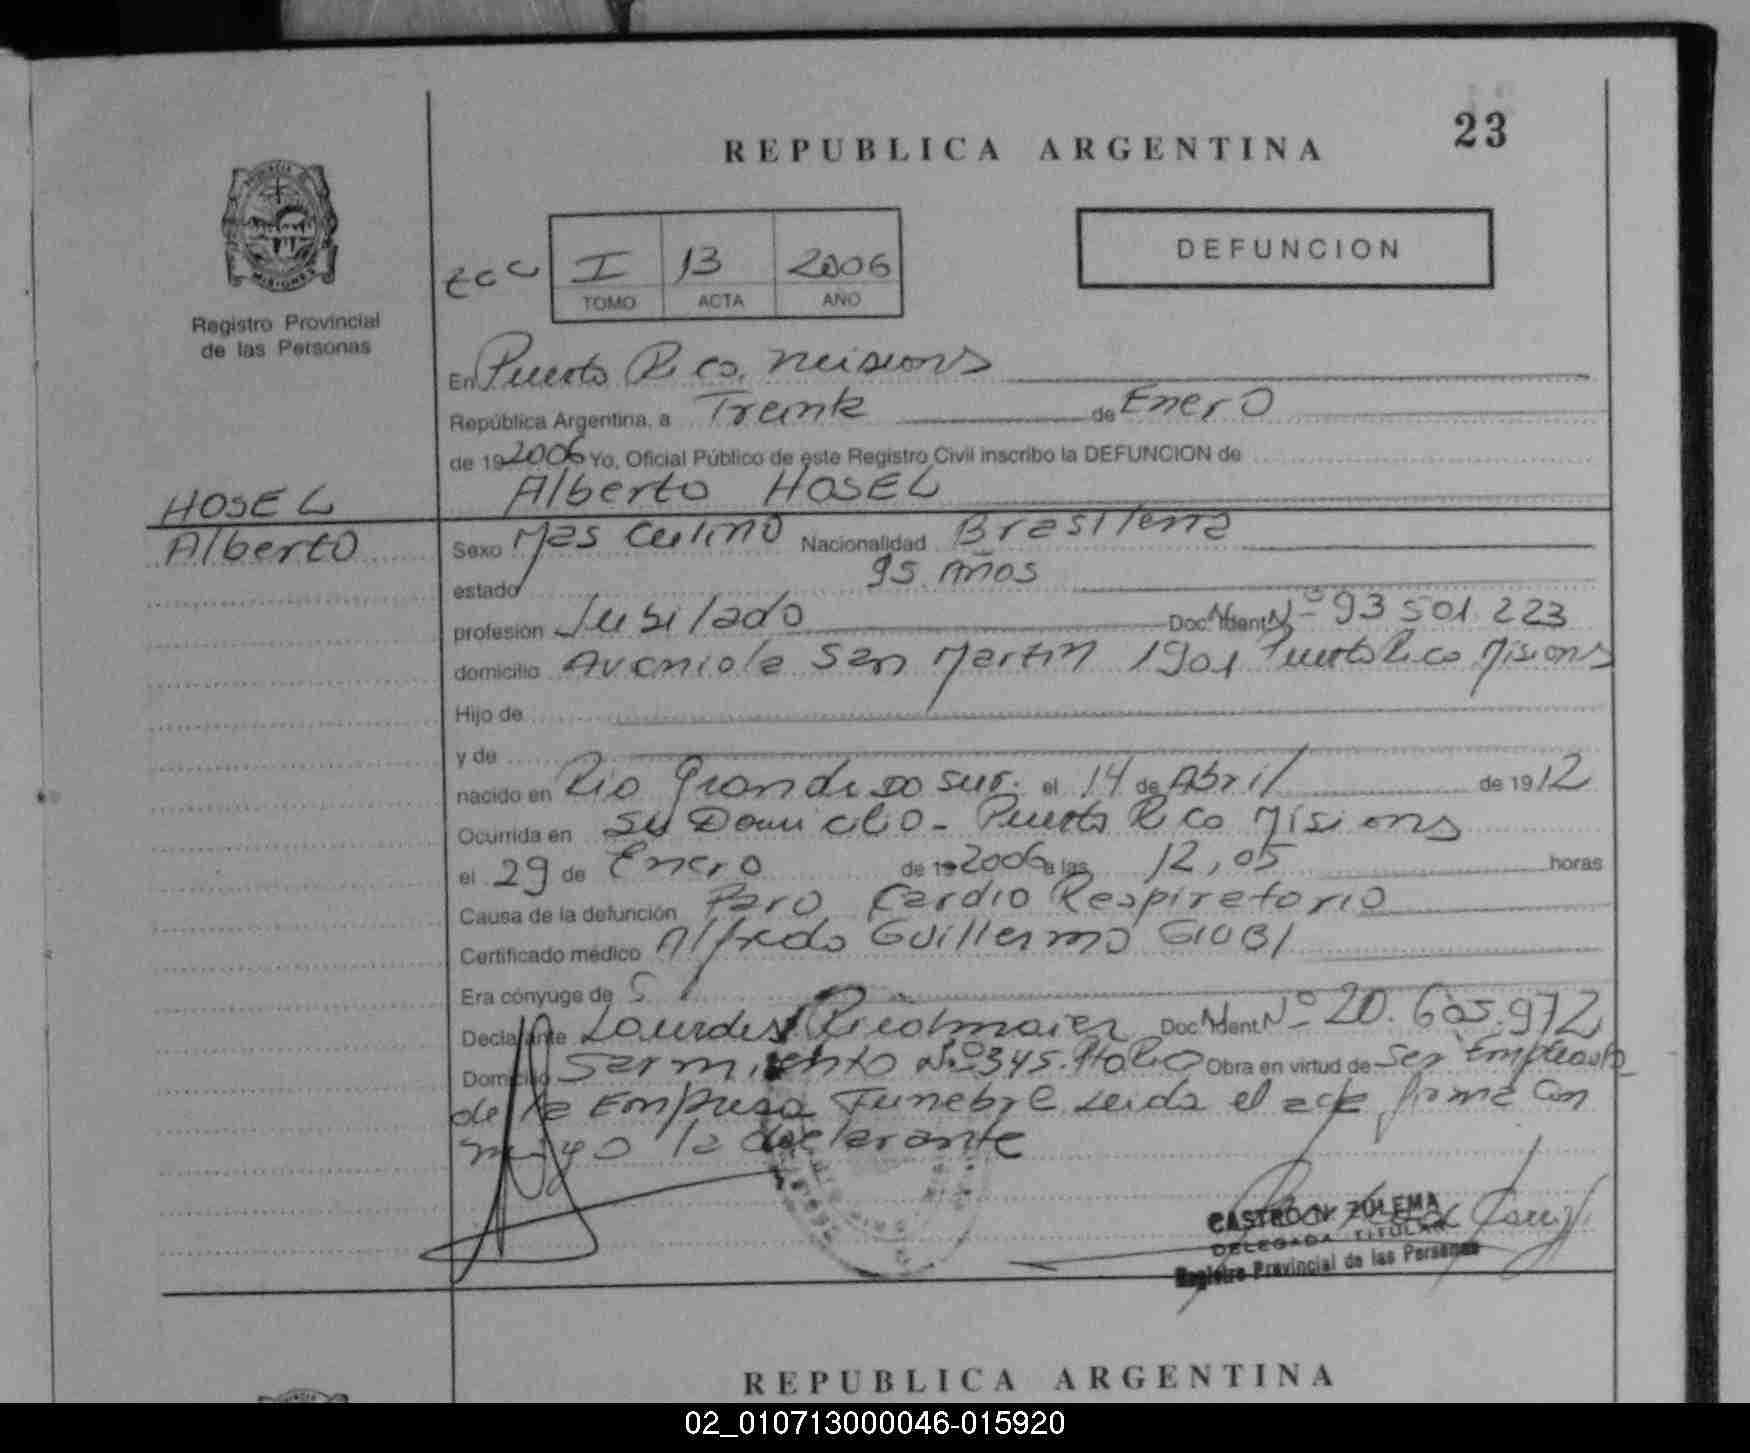 23
REPUBLICA ARGENTINA
DEFUNCION
I 13 2006
TOMO ACTA AÑO
Registro Provincial
de las Personas
En Puerto Rico, Misiones
República Argentina, a Treinta de Enero
de 19 2006 Yo, Oficial Público de este Registro Civil inscribo la DEFUNCION de
Alberto HOSEL
HOSEL
Alberto
Sexo Masculino Nacionalidad Brasilena
estado 95 Años
profesión Jubilado Doc. Ident. Nº 93 501.223
domicilio Avenida San Martin 1901 Puerto Rico Misiones
Hijo de
y de
nacido en Rio Grande Do Sur. el 14 de Abril de 1912
Ocurrida en su Domicilio - Puerto Rico Misiones
el 29 de Enero de 19 2006 a las 12,05 horas
Causa de la defunción Paro Cardio Respiratorio
Certificado médico Alfredo Guillermo GIUBI
Era cónyuge de
Declarante Lourdes Riedmaier Doc. Ident. Nº 20.605.972
Domicilio Sarmiento Nº 345. Obra en virtud de Ser Empleada
de la Empresa Funebre Leida el acta firma con
migo la declarante
CASTRO N. ZULEMA
DELEGADA TITULAR
Registro Provincial de las Personas
REPUBLICA ARGENTINA
02_010713000046-015920